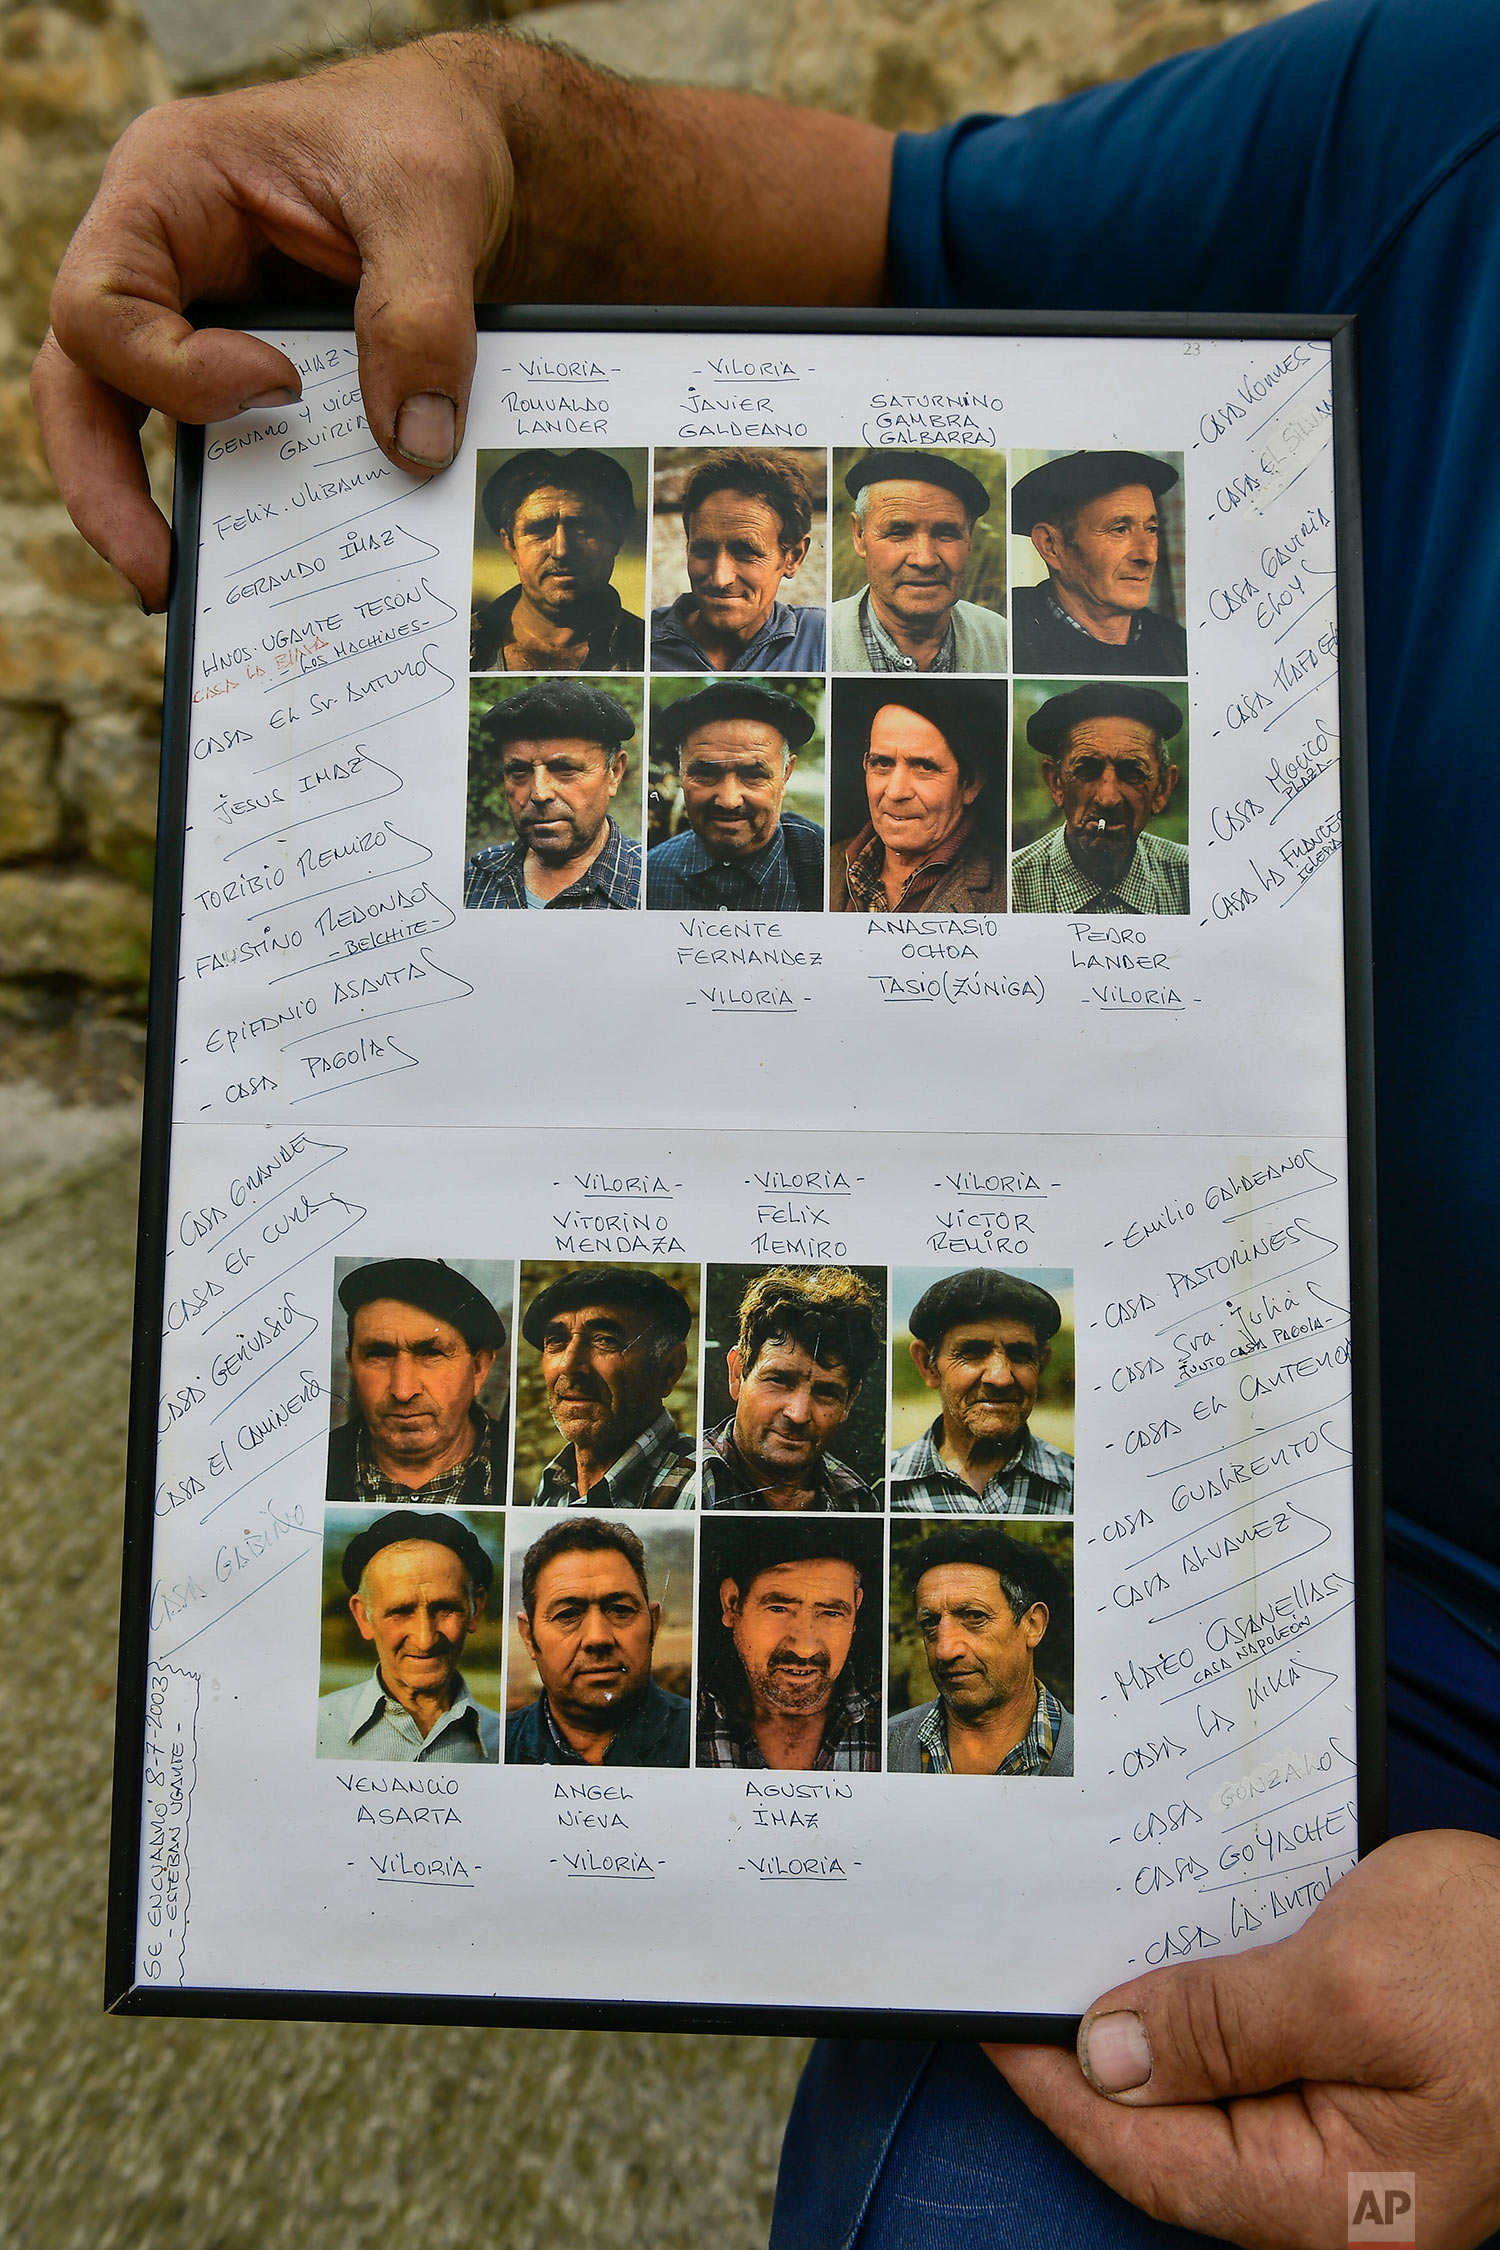 23
IMAZ
GENARO Y VICE
GAVIRIA
- FELIX URIBARRI
- GERARDO IMAZ
- HNOS. UGARTE TESON
CASA LA BINA
- LOS MACHINES -
CASA EL Sr. ANTUÑO
- JESUS IMAZ
- TORIBIO REMIRO
- FAUSTINO REDONDO
- BELCHITE -
- EPIFANIO ASARTA
- CASA PAGOLA
- VILORIA -
ROMUALDO
LANDER
- VILORIA -
JAVIER
GALDEANO
SATURNINO
GAMBRA
(GALBARRA)
VICENTE
FERNANDEZ
- VILORIA -
ANASTASIO
OCHOA
TASIO (ZÚÑIGA)
PEDRO
LANDER
- VILORIA -
- CASA
- CASA EL
- CASA GAVIRIA
ELOY
- CASA RAFAEL
- CASA
PLAZA -
- CASA LA FRANCE
IGLESIA
- CASA GRANDE
- CASA EL CURA
- CASA GERVASIO
CASA EL CAMINERO
CASA GABINO
SE ENCUADRÓ 8-7-2003
- ESTEBAN UGARTE -
- VILORIA -
VITORINO
MENDAZA
- VILORIA -
FELIX
REMIRO
- VILORIA -
VICTOR
REMIRO
VENANCIO
ASARTA
- VILORIA -
ANGEL
NIEVA
- VILORIA -
AGUSTIN
IMAZ
- VILORIA -
- EMILIO GALDEANO
- CASA PASTORINES
- CASA Sra. Julia
JUNTO CASA PAGOLA -
- CASA EL CARTERO
- CASA GUALBERTO
- CASA ALVAREZ
- MATEO CASANELLAS
CASA NAPOLEÓN
- CASA LA KIKA
- CASA GONZALO
- CASA GOYACHE
- CASA LA
AP